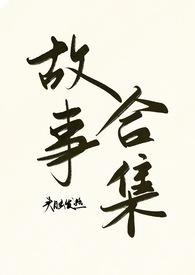 故事
合集